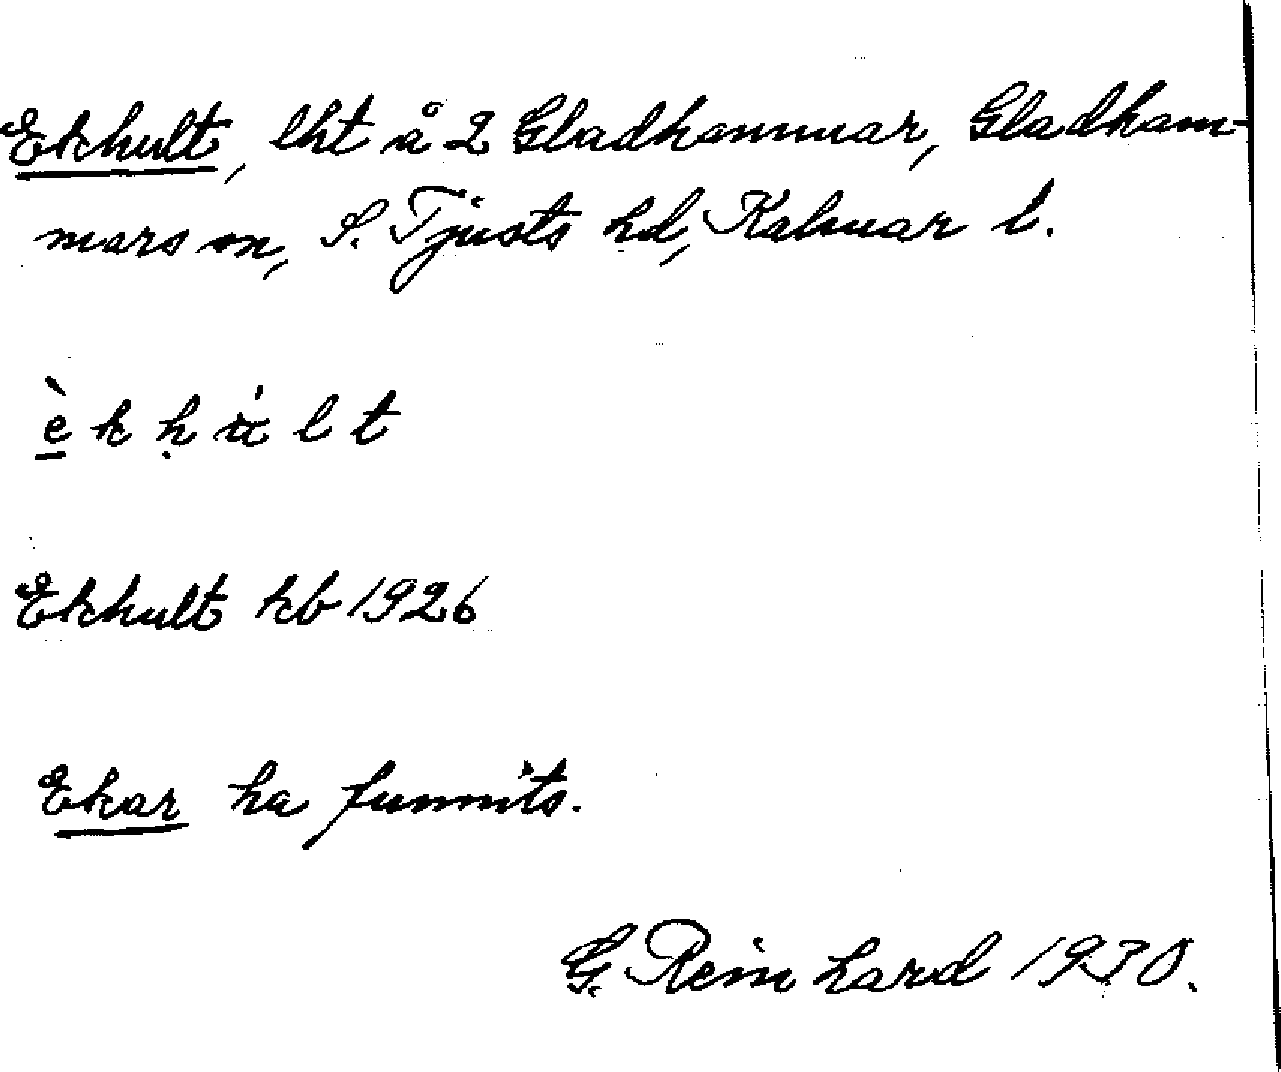 Ekhult, lht å 2 Gladhammar, Gladham-
mars sn, S. Tjusts hd, Kalmar l.
è k h u̇ l t
Ekhult kb 1926
Ekar ha funnits.
G. Reinhard 1930.